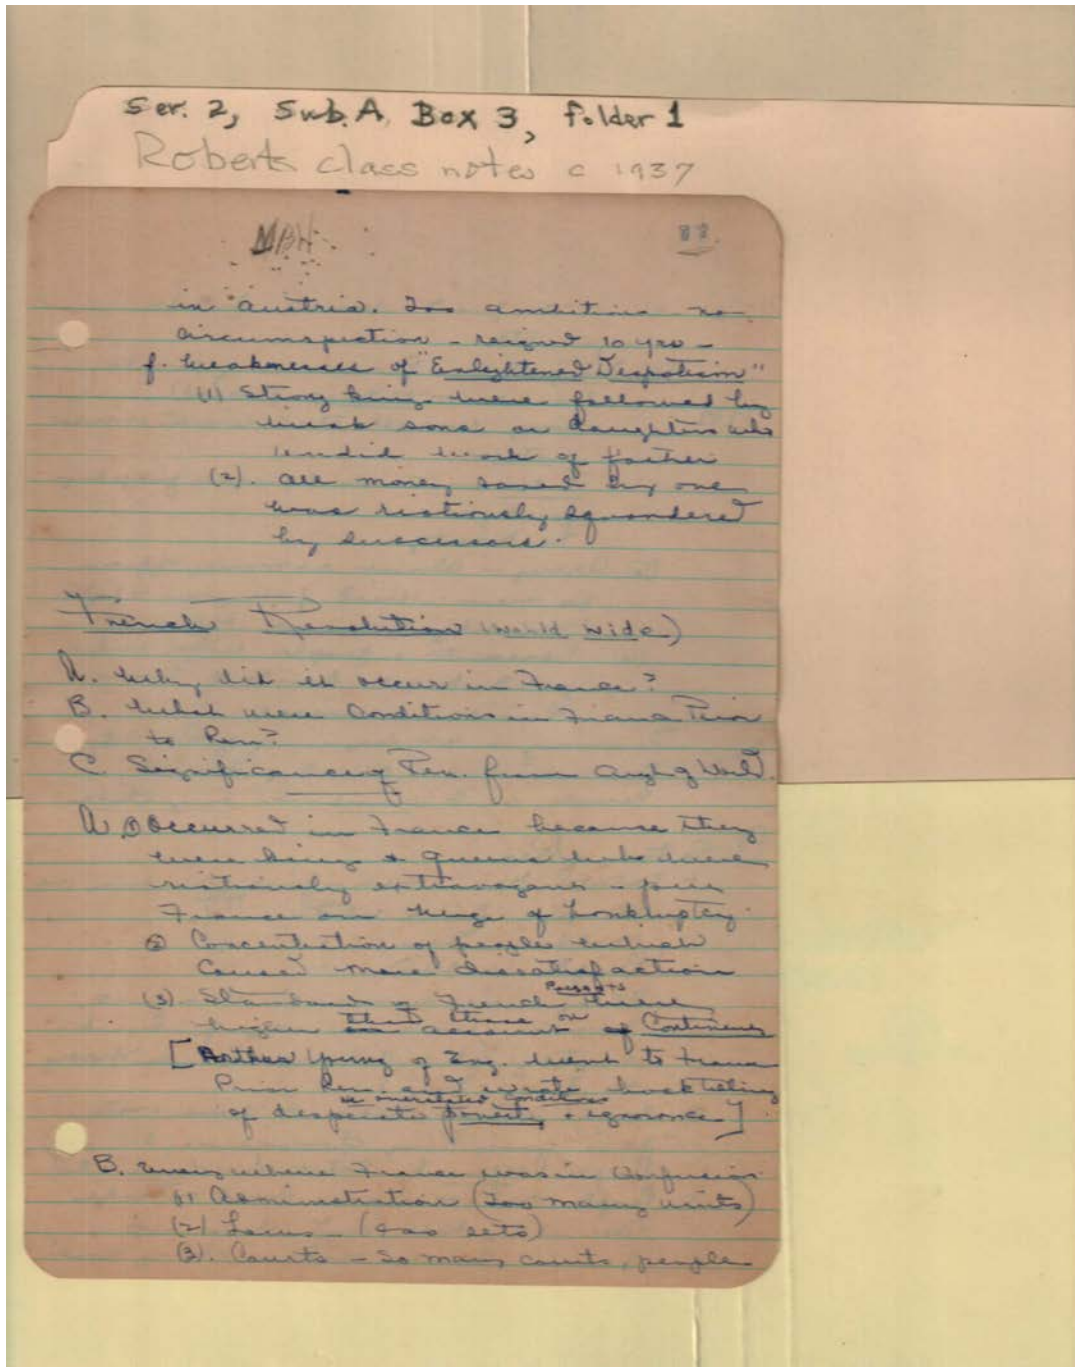 Ser. 2, Sub. A, Box 3, folder 1
Roberts class notes c 1937
MBH
in Austria. Too ambitious no
circumspection - reigned 10 yrs -
f. Weaknesses of "Enlightened Despotism"
(1) Strong kings were followed by
weak sons or daughters who
undid work of father
(2). All money saved by one
was riotiously squandered
by successors.
French Revolution (World Wide)
A. Why did it occur in France?
B. What were Conditions in France Prior
to Rev?
C. Significance of Rev. from
A ① Occurred in France because they
were kings & queens who were
riotiously
France on verge of
② Concentration of people which
caused more dissatisfaction
Peasants
(3). Standards of French were
higher than those on Continent
[Arthur Young of Eng. went to France
Prior Rev. and wrote book telling
of desperate poverty & ignorance]
B. Everywhere France was in Confusion
(1) Administration (Too many units)
(2) Laws - (400 sets)
(3). Courts - So many courts, people